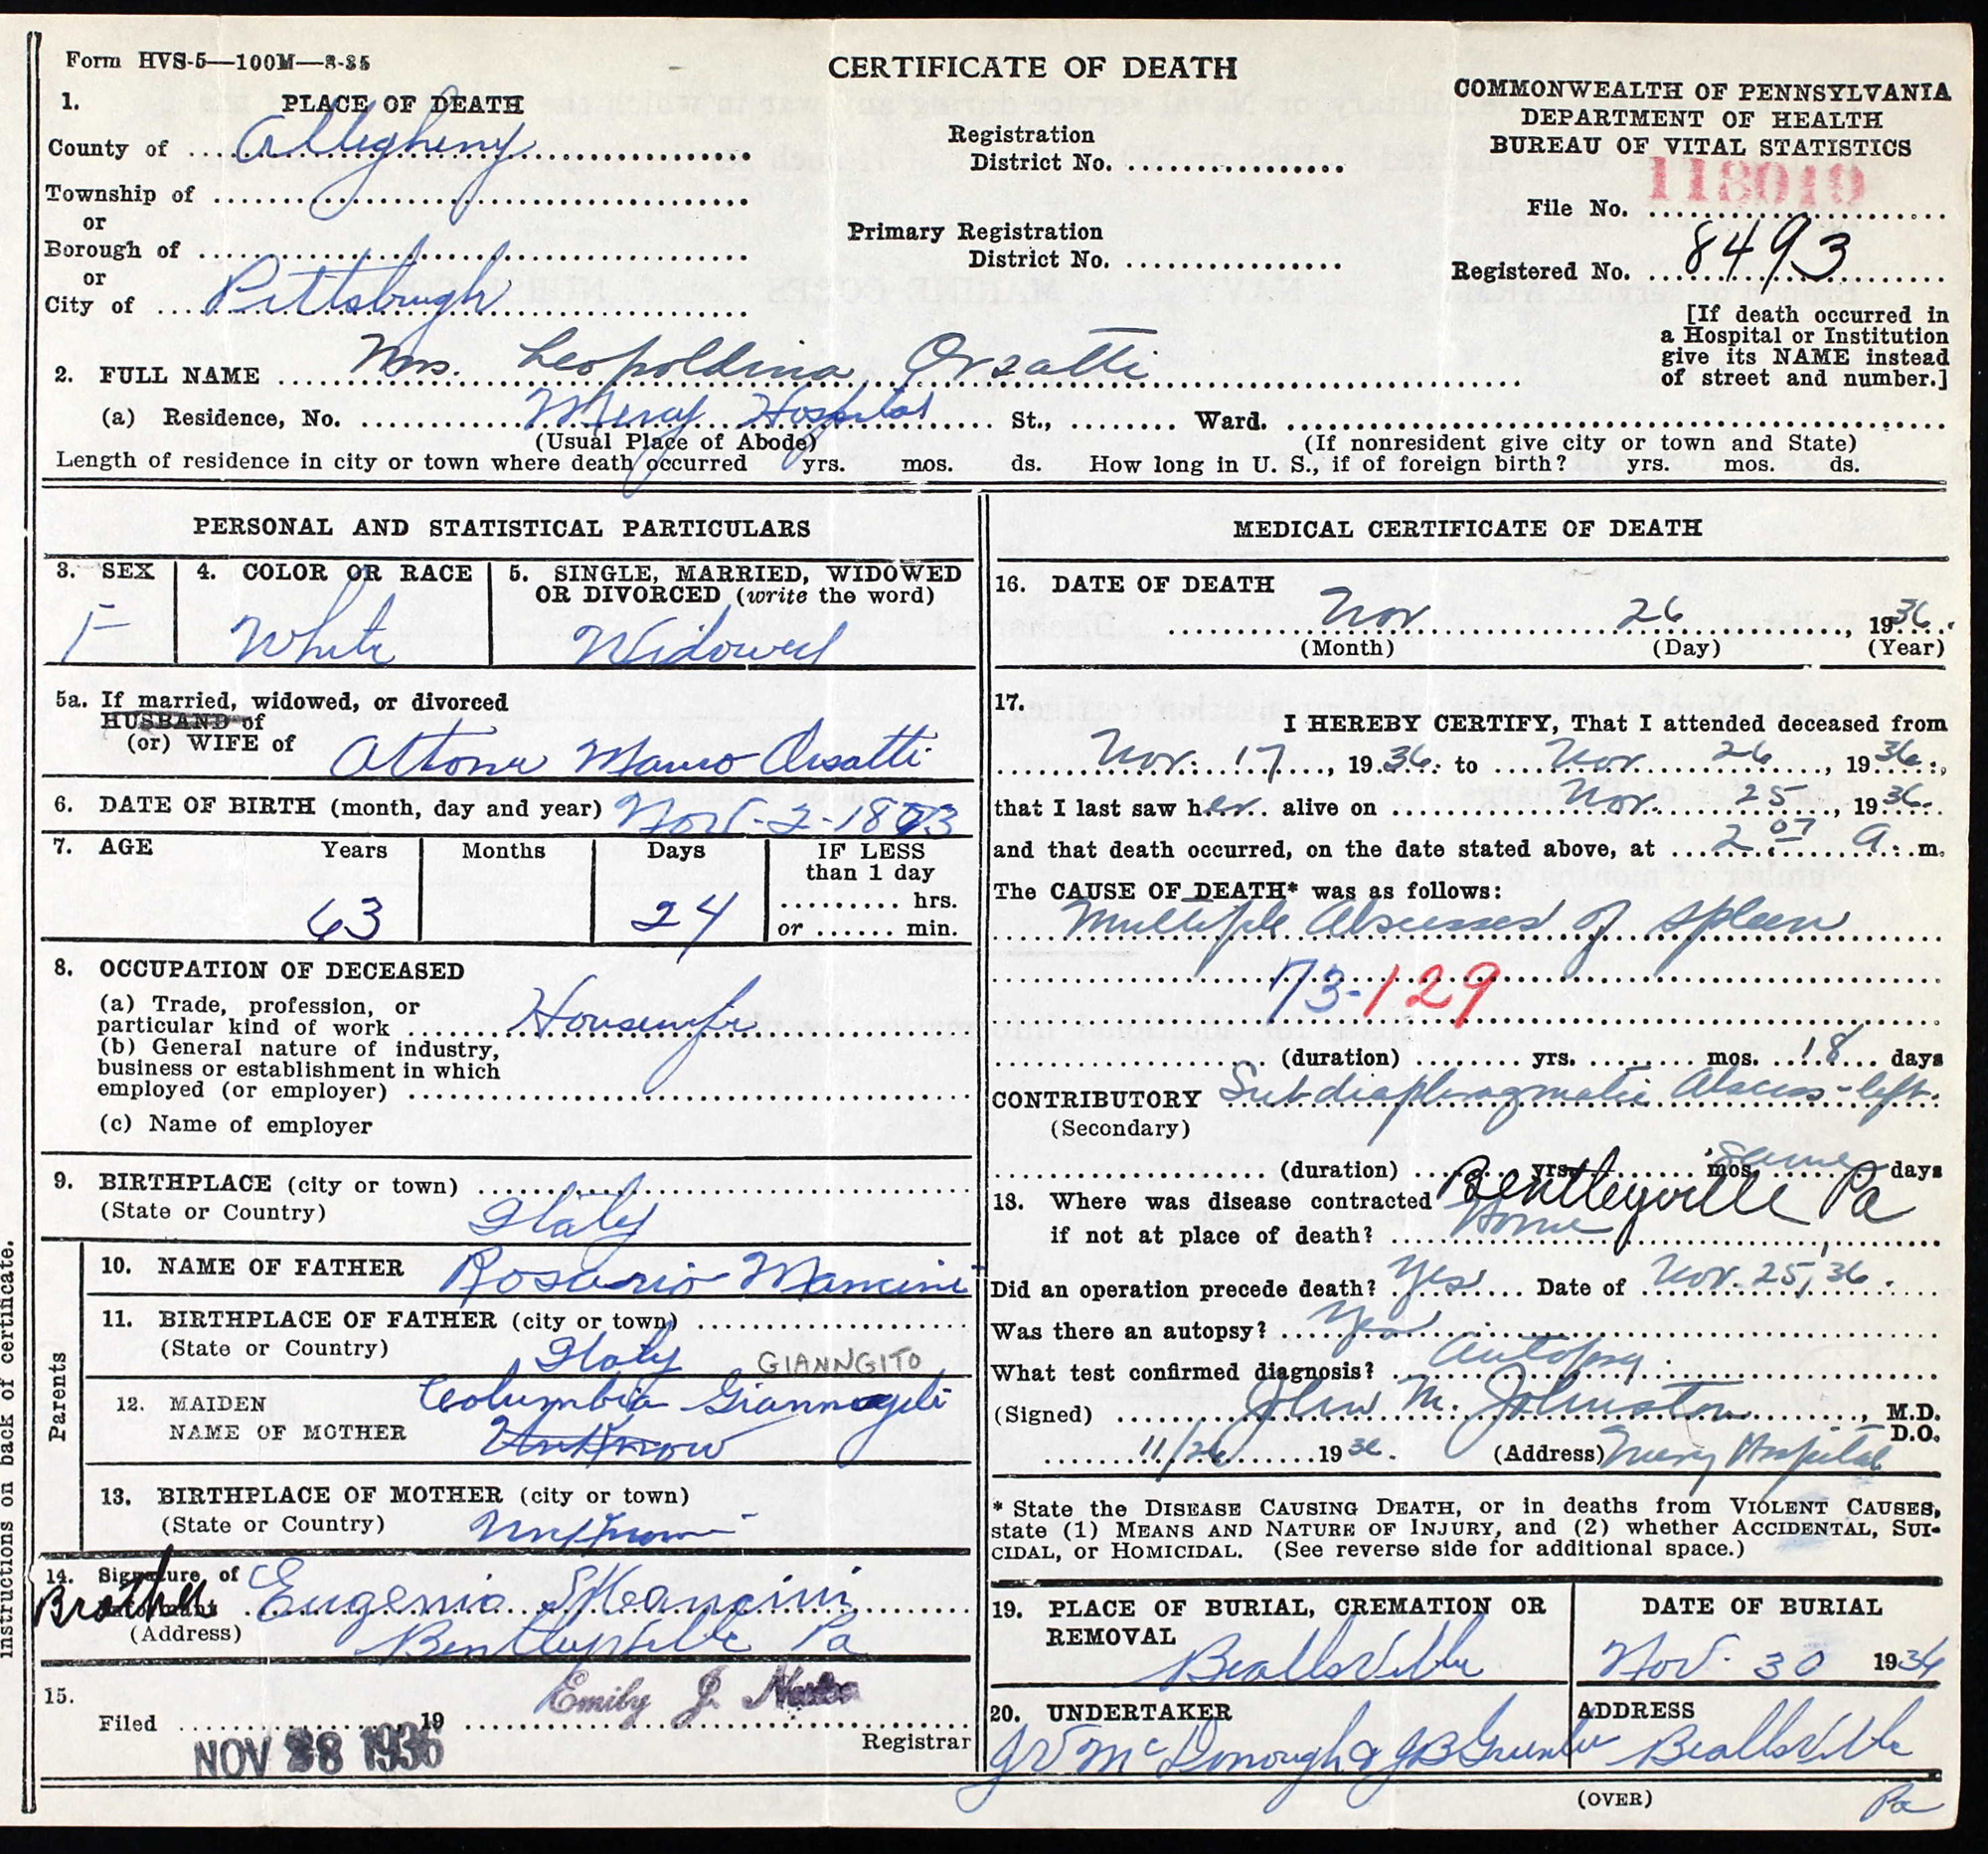 Form HVS-5—100M—8-35
CERTIFICATE OF DEATH
COMMONWEALTH OF PENNSYLVANIA
DEPARTMENT OF HEALTH
BUREAU OF VITAL STATISTICS
1. PLACE OF DEATH
County of Allegheny
Township of
or
Borough of
or
City of Pittsburgh
Registration
District No.
Primary Registration
District No.
File No. 118019
Registered No. 8493
[If death occurred in
a Hospital or Institution
give its NAME instead
of street and number.]
2. FULL NAME Mrs. Leopoldina Orsatti
(a) Residence, No. Mercy Hospital St., Ward.
(Usual Place of Abode) (If nonresident give city or town and State)
Length of residence in city or town where death occurred yrs. mos. ds. How long in U. S., if of foreign birth? yrs. mos. ds.
PERSONAL AND STATISTICAL PARTICULARS
3. SEX
F
4. COLOR OR RACE
White
5. SINGLE, MARRIED, WIDOWED
OR DIVORCED (write the word)
Widowed
5a. If married, widowed, or divorced
HUSBAND of
(or) WIFE of Mauro Orsatti
6. DATE OF BIRTH (month, day and year) Nov-2-1873
7. AGE Years Months Days IF LESS
than 1 day
63 24 hrs.
or min.
8. OCCUPATION OF DECEASED
(a) Trade, profession, or
particular kind of work Housewife
(b) General nature of industry,
business or establishment in which
employed (or employer)
(c) Name of employer
9. BIRTHPLACE (city or town)
(State or Country) Italy
Parents
10. NAME OF FATHER Rosario Mancini
11. BIRTHPLACE OF FATHER (city or town)
(State or Country) Italy
GIANNGITO
12. MAIDEN Columbia
NAME OF MOTHER Unknow
13. BIRTHPLACE OF MOTHER (city or town)
(State or Country) Unknown
14. Signature of
Brother Informant Eugenio Mancini
(Address) Bentleyville Pa
15.
Filed 19 Emily J.
NOV 28 1936 Registrar
Instructions on back of certificate.
MEDICAL CERTIFICATE OF DEATH
16. DATE OF DEATH
Nov 26, 1936
(Month) (Day) (Year)
17.
I HEREBY CERTIFY, That I attended deceased from
Nov. 17, 1936 to Nov 26, 1936,
that I last saw her alive on Nov. 25, 1936.
and that death occurred, on the date stated above, at 2 07 a. m.
The CAUSE OF DEATH* was as follows:
Multiple Abscesses of Spleen
73-129
(duration) yrs. mos. 18 days
CONTRIBUTORY Subdiaphragmatic Abscess-left.
(Secondary)
(duration) yrs. mos. same days
18. Where was disease contracted Bentleyville Pa
if not at place of death? Home
Did an operation precede death? Yes Date of Nov. 25, 36.
Was there an autopsy? Yes
What test confirmed diagnosis? Autopsy
(Signed) John M. Johnston, M.D.
D.O.
11/26 1936. (Address) Mercy Hospital
* State the DISEASE CAUSING DEATH, or in deaths from VIOLENT CAUSES,
state (1) MEANS AND NATURE OF INJURY, and (2) whether ACCIDENTAL, SUI-
CIDAL, or HOMICIDAL. (See reverse side for additional space.)
19. PLACE OF BURIAL, CREMATION OR
REMOVAL
Beallsville
DATE OF BURIAL
Nov. 30 1936
20. UNDERTAKER
McDonough & JB
ADDRESS
Beallsville
Pa
(OVER)